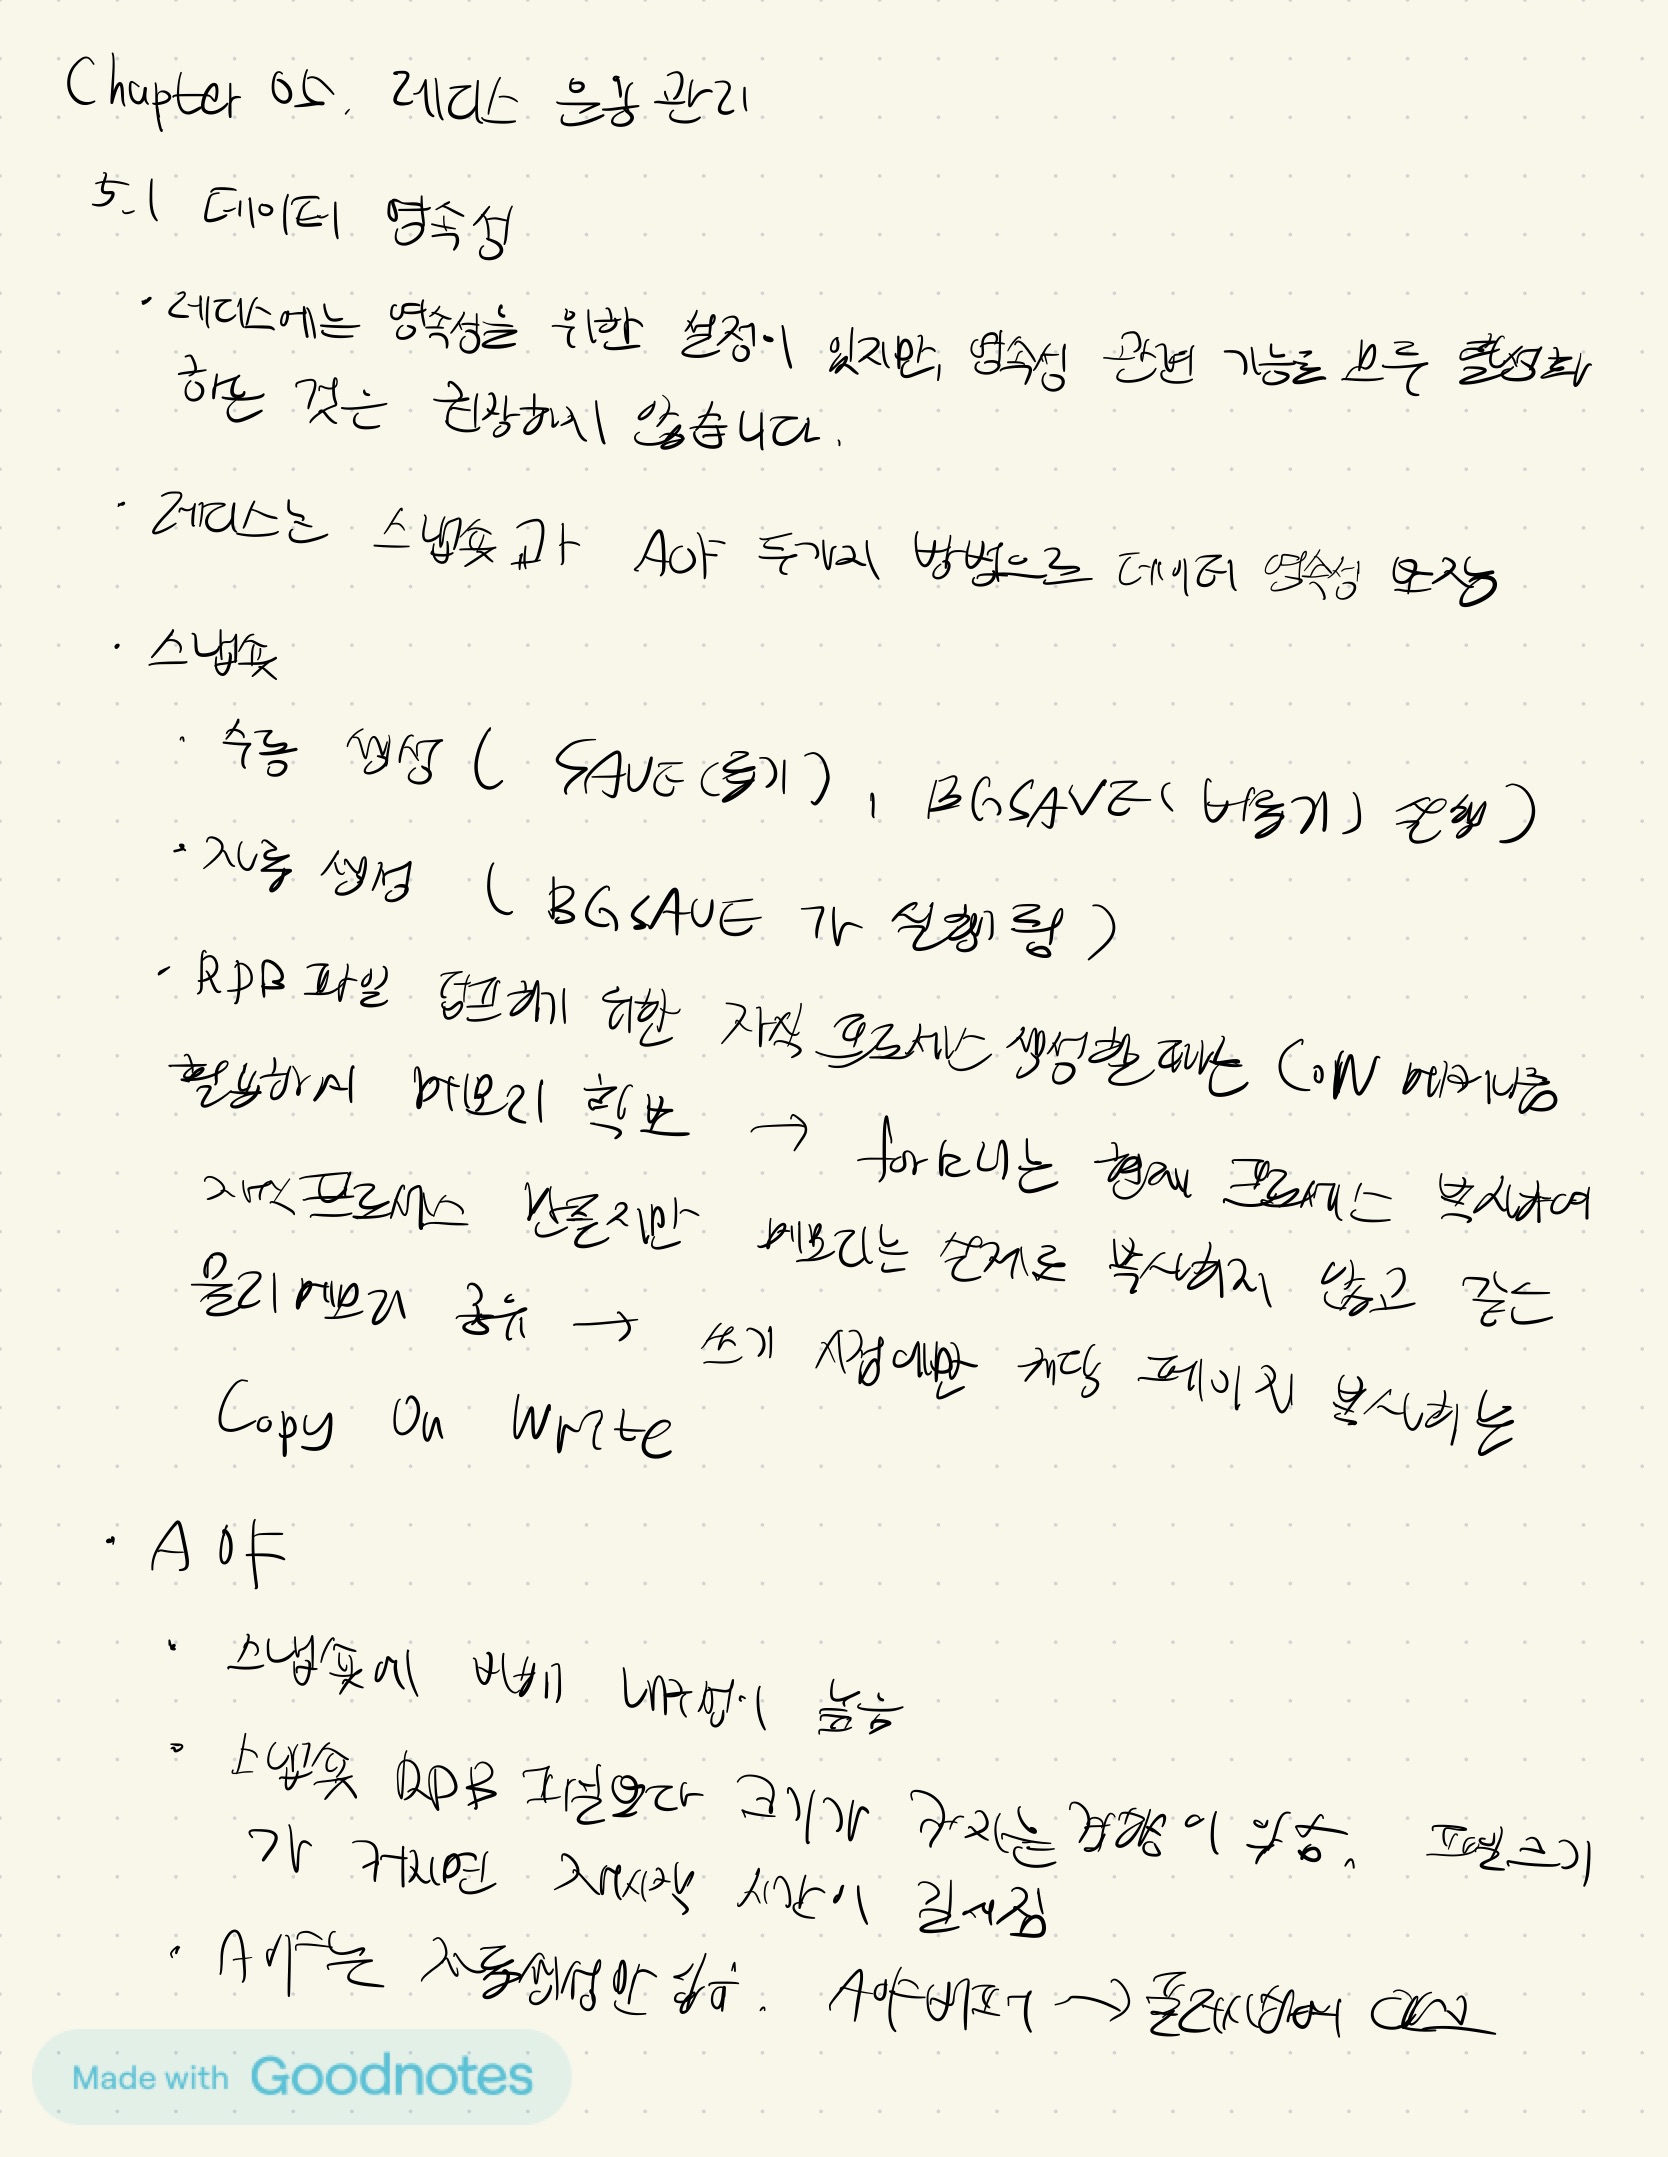 Chapter 05. 레디스 운용 관리
5.1 데이터 영속성
· 레디스에는 영속성을 위한 설정이 있지만, 영속성 관련 기능을 모두 활성화
하는 것은 권장하지 않습니다.
· 레디스는 스냅숏과 AOF 두가지 방법으로 데이터 영속성 보장
· 스냅숏
· 수동 생성 ( SAVE(동기), BGSAVE(비동기) 실행 )
· 자동 생성 ( BGSAVE 가 실행됨 )
· RDB 파일 덤프하기 위한 자식 프로세스 생성할 때는 CoW 메커니즘
활용하여 메모리 확보 → fork는 현재 프로세스 복사하여
자식프로세스 만들지만 메모리는 실제로 복사하지 않고 같은
물리 메모리 공유 → 쓰기 시점에만 해당 페이지 복사하는
Copy On Write
· AOF
· 스냅숏에 비해 내구성이 높음
· 스냅숏 RDB 파일보다 크기가 커지는 경향이 있음. 파일크기
가 커지면 재시작 시간이 길어짐
· AOF는 자동생성만 있음. AOF버퍼 → 플러시하여
Made with Goodnotes